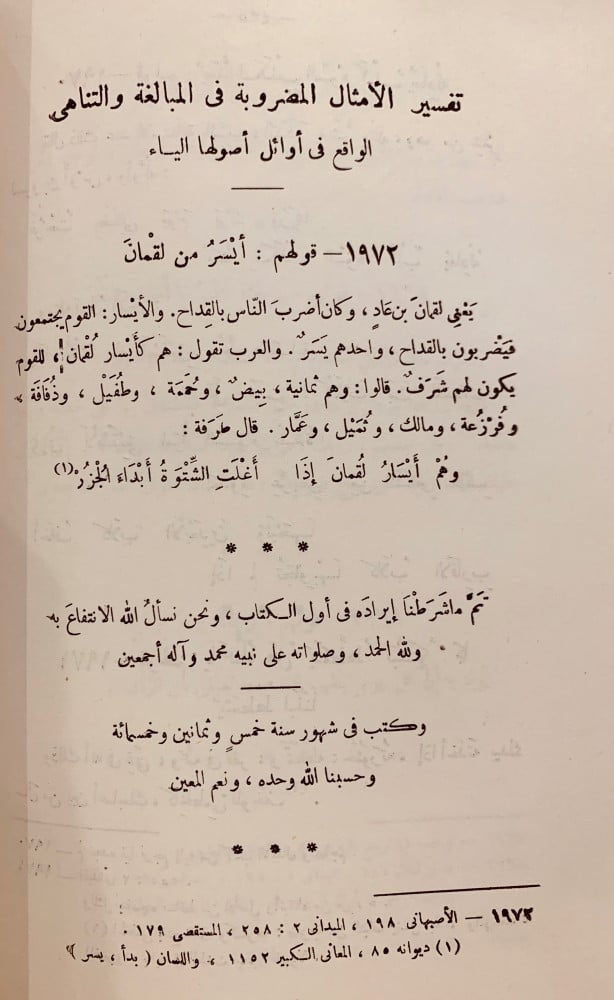 تفسير الأمثال المضروبة فى المبالغة والتناهى
الواقع فى أوائل أصولها اليـاء
١٩٧٢ – قولهم : أيْسَرُ من لقْمانَ
يَعْنِى لقمانَ بن عَادٍ ، وكان أضربَ النّاس بالقِداح. والأيْسار: القوم يجتمعون
فيَضْربون بالقداح ، واحدهم يَسَرٌ . والعرب تقول : هم كأَيْسار لُقْمان ، للقوم
يكون لهم شَرَفٌ . قالوا : وهم ثمانية ، بِيضٌ ، وحُمَمَة ، وطُفَيْل ، وذُفَافَة ،
وفُرْزُعة ، ومالك ، وثُمَيْل ، وعَمَّار . قال طَرَفة :
وهُمُ أيْسَارُ لُقمانَ إذَا أغْلَتِ الشَّتْوَةُ أبْدَاءَ الجُزُرْ (١)
* * *
تَمَّ ماشَرَطْنَا إيرادَه فى أول الـكتاب ، ونحن نسألُ الله الانتفاعَ به
ولله الحمد ، وصلواته على نبيه محمد وآله أجمعين
وكتب فى شهور سنة خمسٍ وثمانين وخمسمائة
وحسبنا الله وحده ، ونعم المعين
* * *
١٩٧٢ – الأصبهانى ١٩٨ ، الميدانى ٢ : ٢٥٨ ، المستقصى ١٧٩ .
(١) ديوانه ٨٥ ، المعانى الـكبير ١١٥٢ ، واللسان ( بدأ ، يسر )